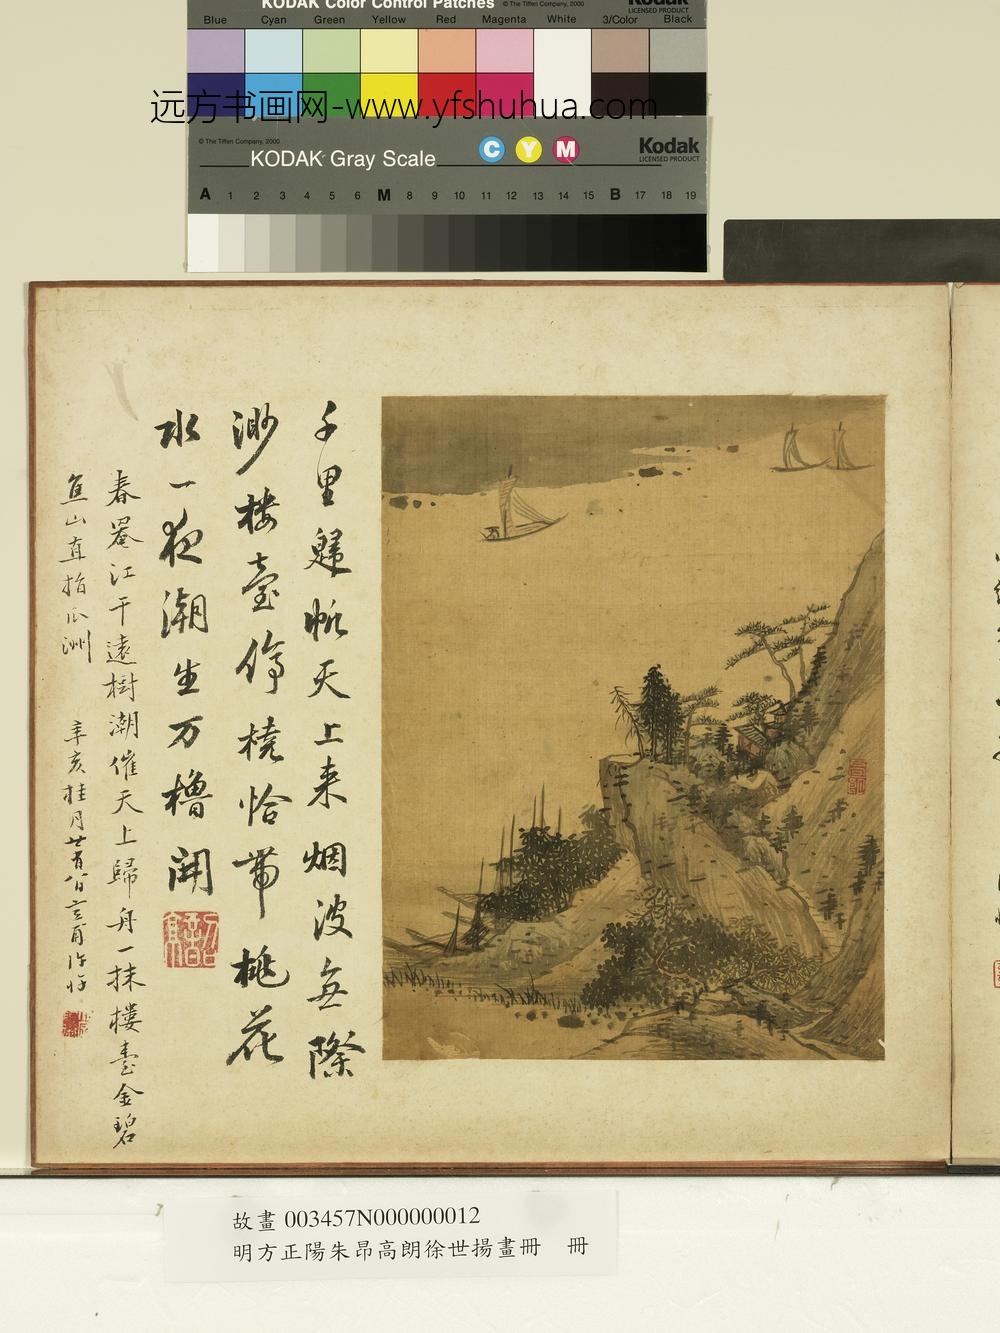 KODAK Color Control Patches
© The Tiffen Company, 2000
Kodak
LICENSED PRODUCT
Blue Cyan Green Yellow Red Magenta White 3/Color Black
远方书画网-www.yfshuhua.com
© The Tiffen Company, 2000
KODAK Gray Scale
C Y M
Kodak
LICENSED PRODUCT
A 1 2 3 4 5 6 M 8 9 10 11 12 13 14 15 B 17 18 19
千里歸帆天上来烟波無際
渺樓臺停橈恰帶桃花
水一夜潮生万櫓開
春暮江干遠樹潮催天上歸舟一抹樓臺金碧
焦山直指瓜洲
辛亥桂月
故畫 003457N000000012
明方正陽朱昂高朗徐世揚畫冊 冊